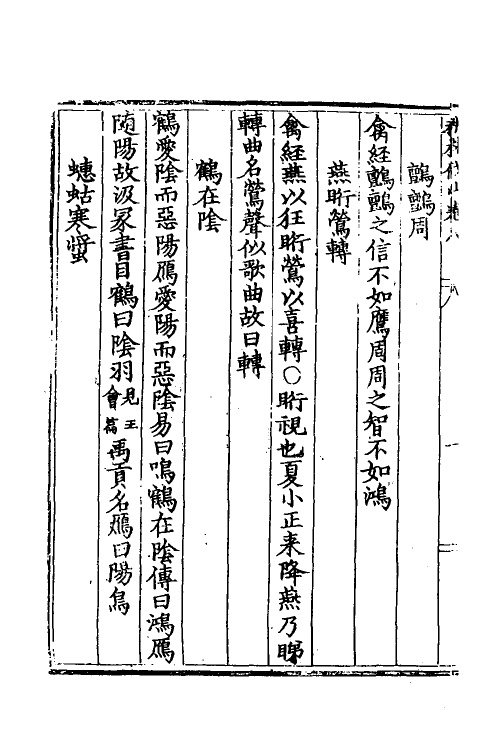 鸇鸇周
禽經鸇鸇之信不如鷹周周之智不如鴻
燕䀪鶯轉
禽經燕以狂䀪鶯以喜轉〇䀪視也夏小正来降燕乃睇
轉曲名鶯聲似歌曲故曰轉
鶴在陰
鶴愛陰而惡陽鴈愛陽而惡陰易曰鳴鶴在陰傳曰鴻鴈
随陽故汲冢書目鶴曰陰羽見王會篇禹貢名鴈曰陽鳥
蟪蛄寒螿